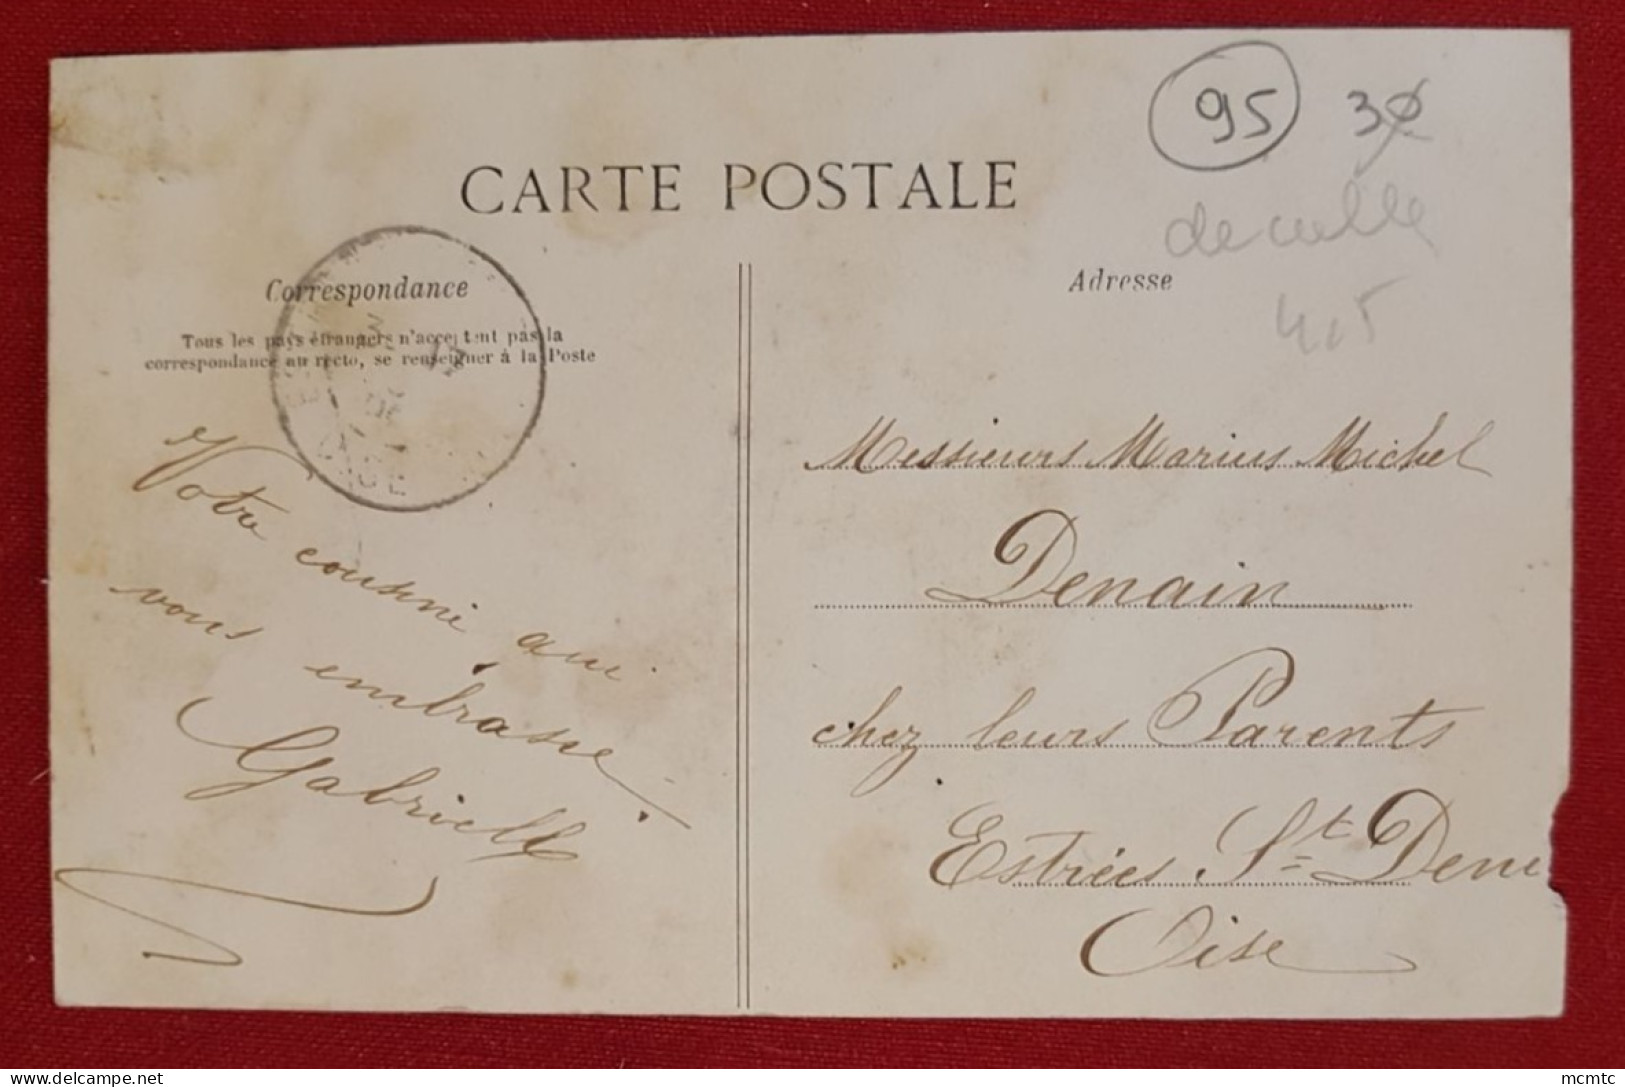 95 30
CARTE POSTALE
4,5
Correspondance
Tous les pays étrangers n'acceptent pas la
correspondance au recto, se renseigner à la Poste
Votre cousine qui
vous embrasse.
Gabrielle
Adresse
Messieurs Marius Michel
Denain
chez leurs Parents
Estrées St Deni
Oise
OISE
Delcampe.net
mcmtc